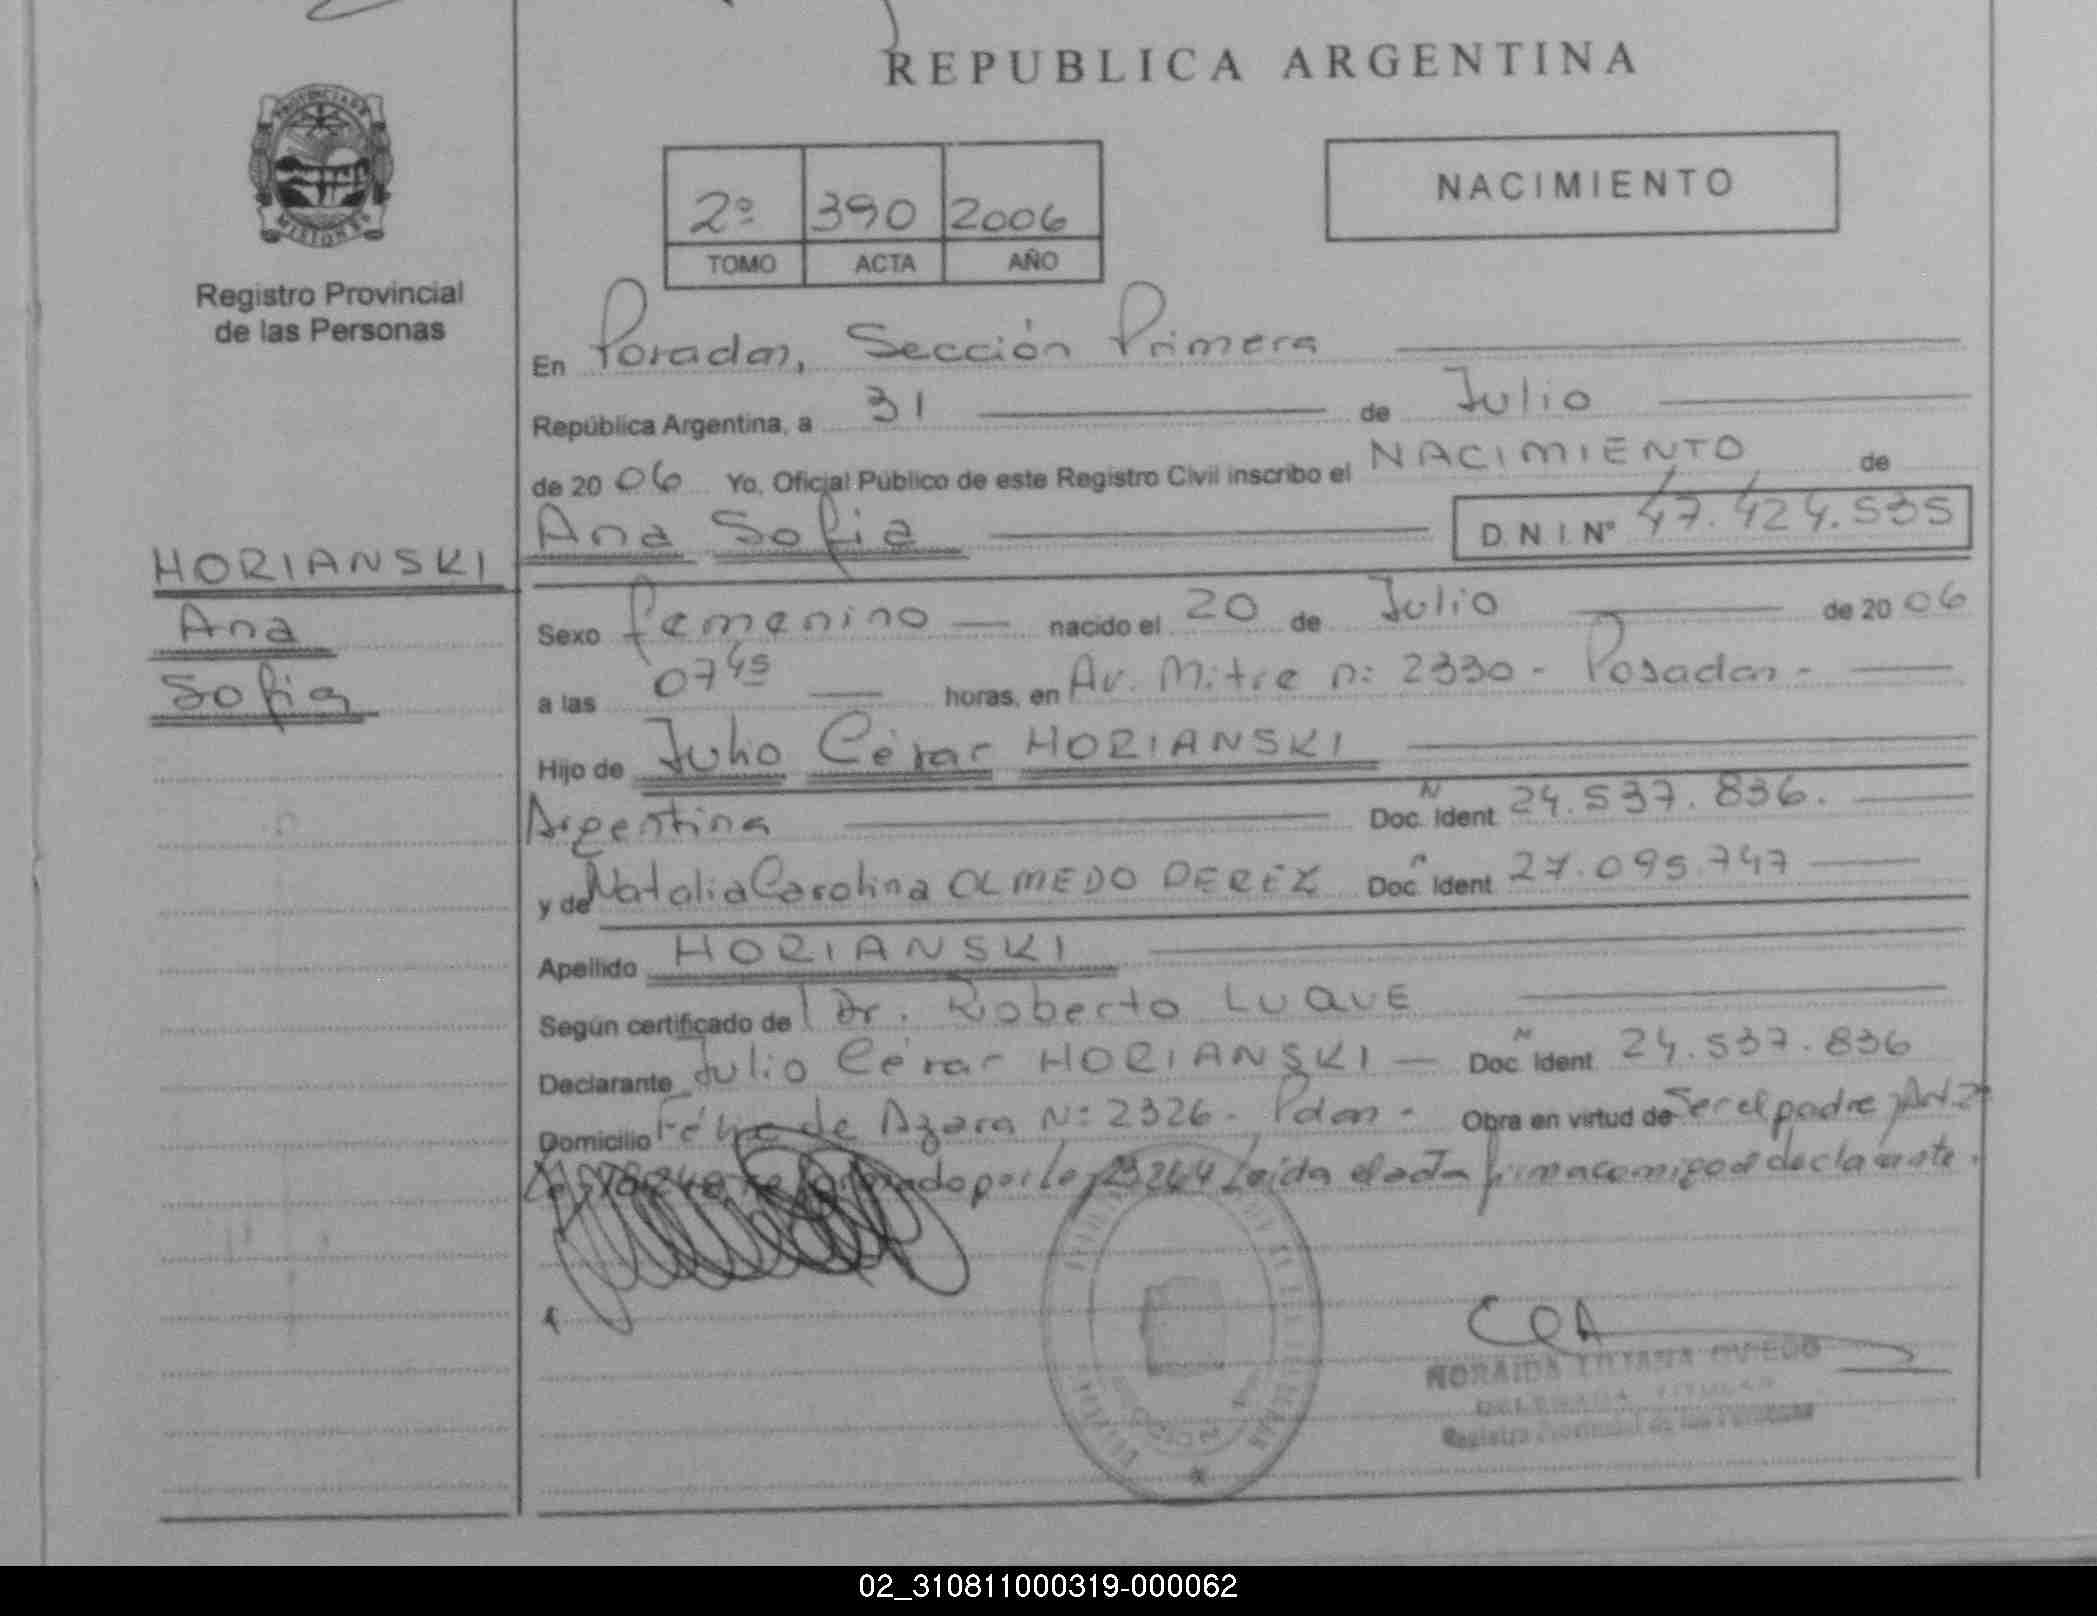 REPUBLICA ARGENTINA
PROVINCIA DE
MISIONES
Registro Provincial
de las Personas
2º 390 2006
TOMO ACTA AÑO
NACIMIENTO
En Posadas, Sección Primera
República Argentina, a 31 de Julio
de 20 06 Yo, Oficial Público de este Registro Civil inscribo el NACIMIENTO de
Ana Sofia D.N.I. Nº 47.424.535
HORIANSKI
Ana
Sofia
Sexo femenino nacido el 20 de Julio de 20 06
a las 07 45 horas, en Av. Mitre n: 2330 - Posadas -
Hijo de Julio César HORIANSKI
Argentina Doc. Ident. N 24.537.836.
y de Natalia Carolina OLMEDO PEREZ Doc. Ident. N 27.095.747
Apellido HORIANSKI
Según certificado de Dr. Roberto LUQUE
Declarante Julio César HORIANSKI Doc. Ident. N 24.537.836
Domicilio Félix de Azara Nº 2326 - Pdas - Obra en virtud de Ser el padre, Art 2
por Ley 23264 Leída el acta firma conmigo el declarante.
NORAIDA LILIANA OVIEDO
DELEGADA TITULAR
Registro Provincial de las Personas
02_310811000319-000062